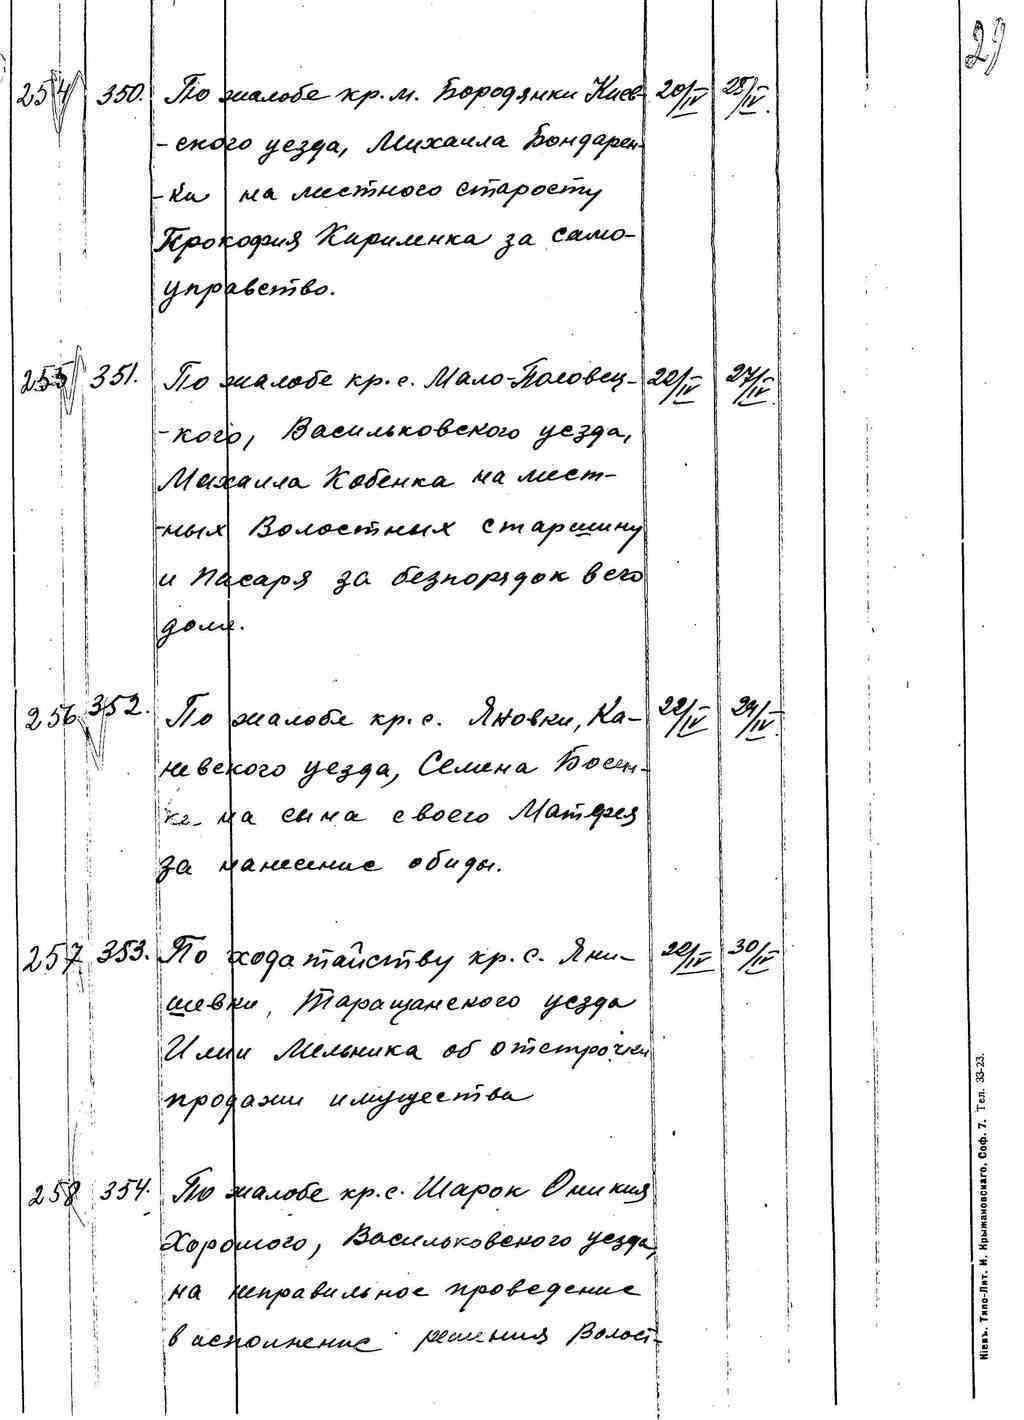 29
254 350. По жалобе кр. м. Бородянки Киев- 20/IV 28/IV.
-ского уезда, Михаила Бондарен-
-ки на местного старосту
Прокофия Кириленка за само-
управство.
255 351. По жалобе кр. с. Мало-Половец- 22/IV 27/IV.
-кого, Васильковского уезда,
Михаила Кобенка на мест-
-ных Волостных старшину
и писаря за безпорядок в его
доме.
256 352. По жалобе кр. с. Яновки, Ка- 22/IV 24/IV.
невского уезда, Семена Босен-
на сына своего Матфея
за нанесение обиды.
257 353. По ходатайству кр. с. Яни- 22/IV 30/IV
шевки, Таращанского уезда
Илии Мельника об отстрочки
продажи имущества
258 354. По жалобе кр. с. Шарок Оникия
Хорошого, Васильковского уезда,
на неправильное проведение
в исполнение решения Волост-
Кіевъ. Типо-Лит. И. Крыжановскаго, Соф. 7. Тел. 33-23.